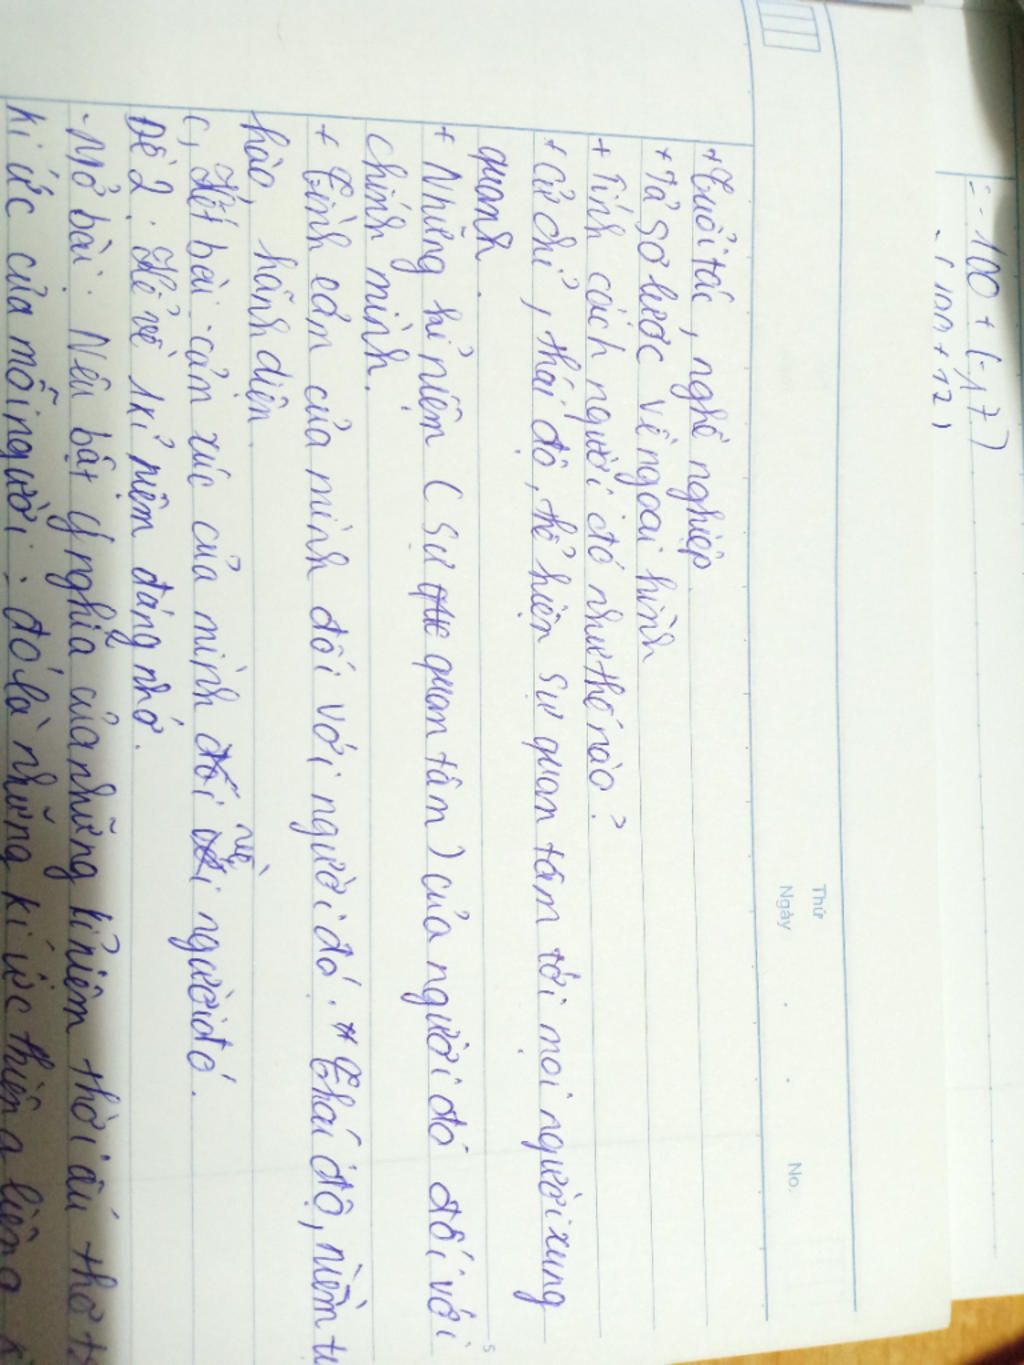 - 100 + (-17)
Thứ
Ngày
No.
+ Tuổi tác, nghề nghiệp.
+ Tả sơ lược về ngoại hình
+ Tính cách người đó như thế nào?
+ Cử chỉ, thái độ, thể hiện sự quan tâm tới mọi người xung
quanh.
+ Những kỉ niệm (sự quan tâm) của người đó đối với
chính mình.
+ Tình cảm của mình đối với người đó. * Thái độ, niềm tự
hào, hãnh diện.
c, Kết bài: cảm xúc của mình về người đó.
Đề 2: Kể về 1 kỉ niệm đáng nhớ.
- Mở bài: Nêu bật ý nghĩa của những kỉ niệm thời ấu thơ
kí ức của mỗi người: đó là những kí ức thiêng liêng
5